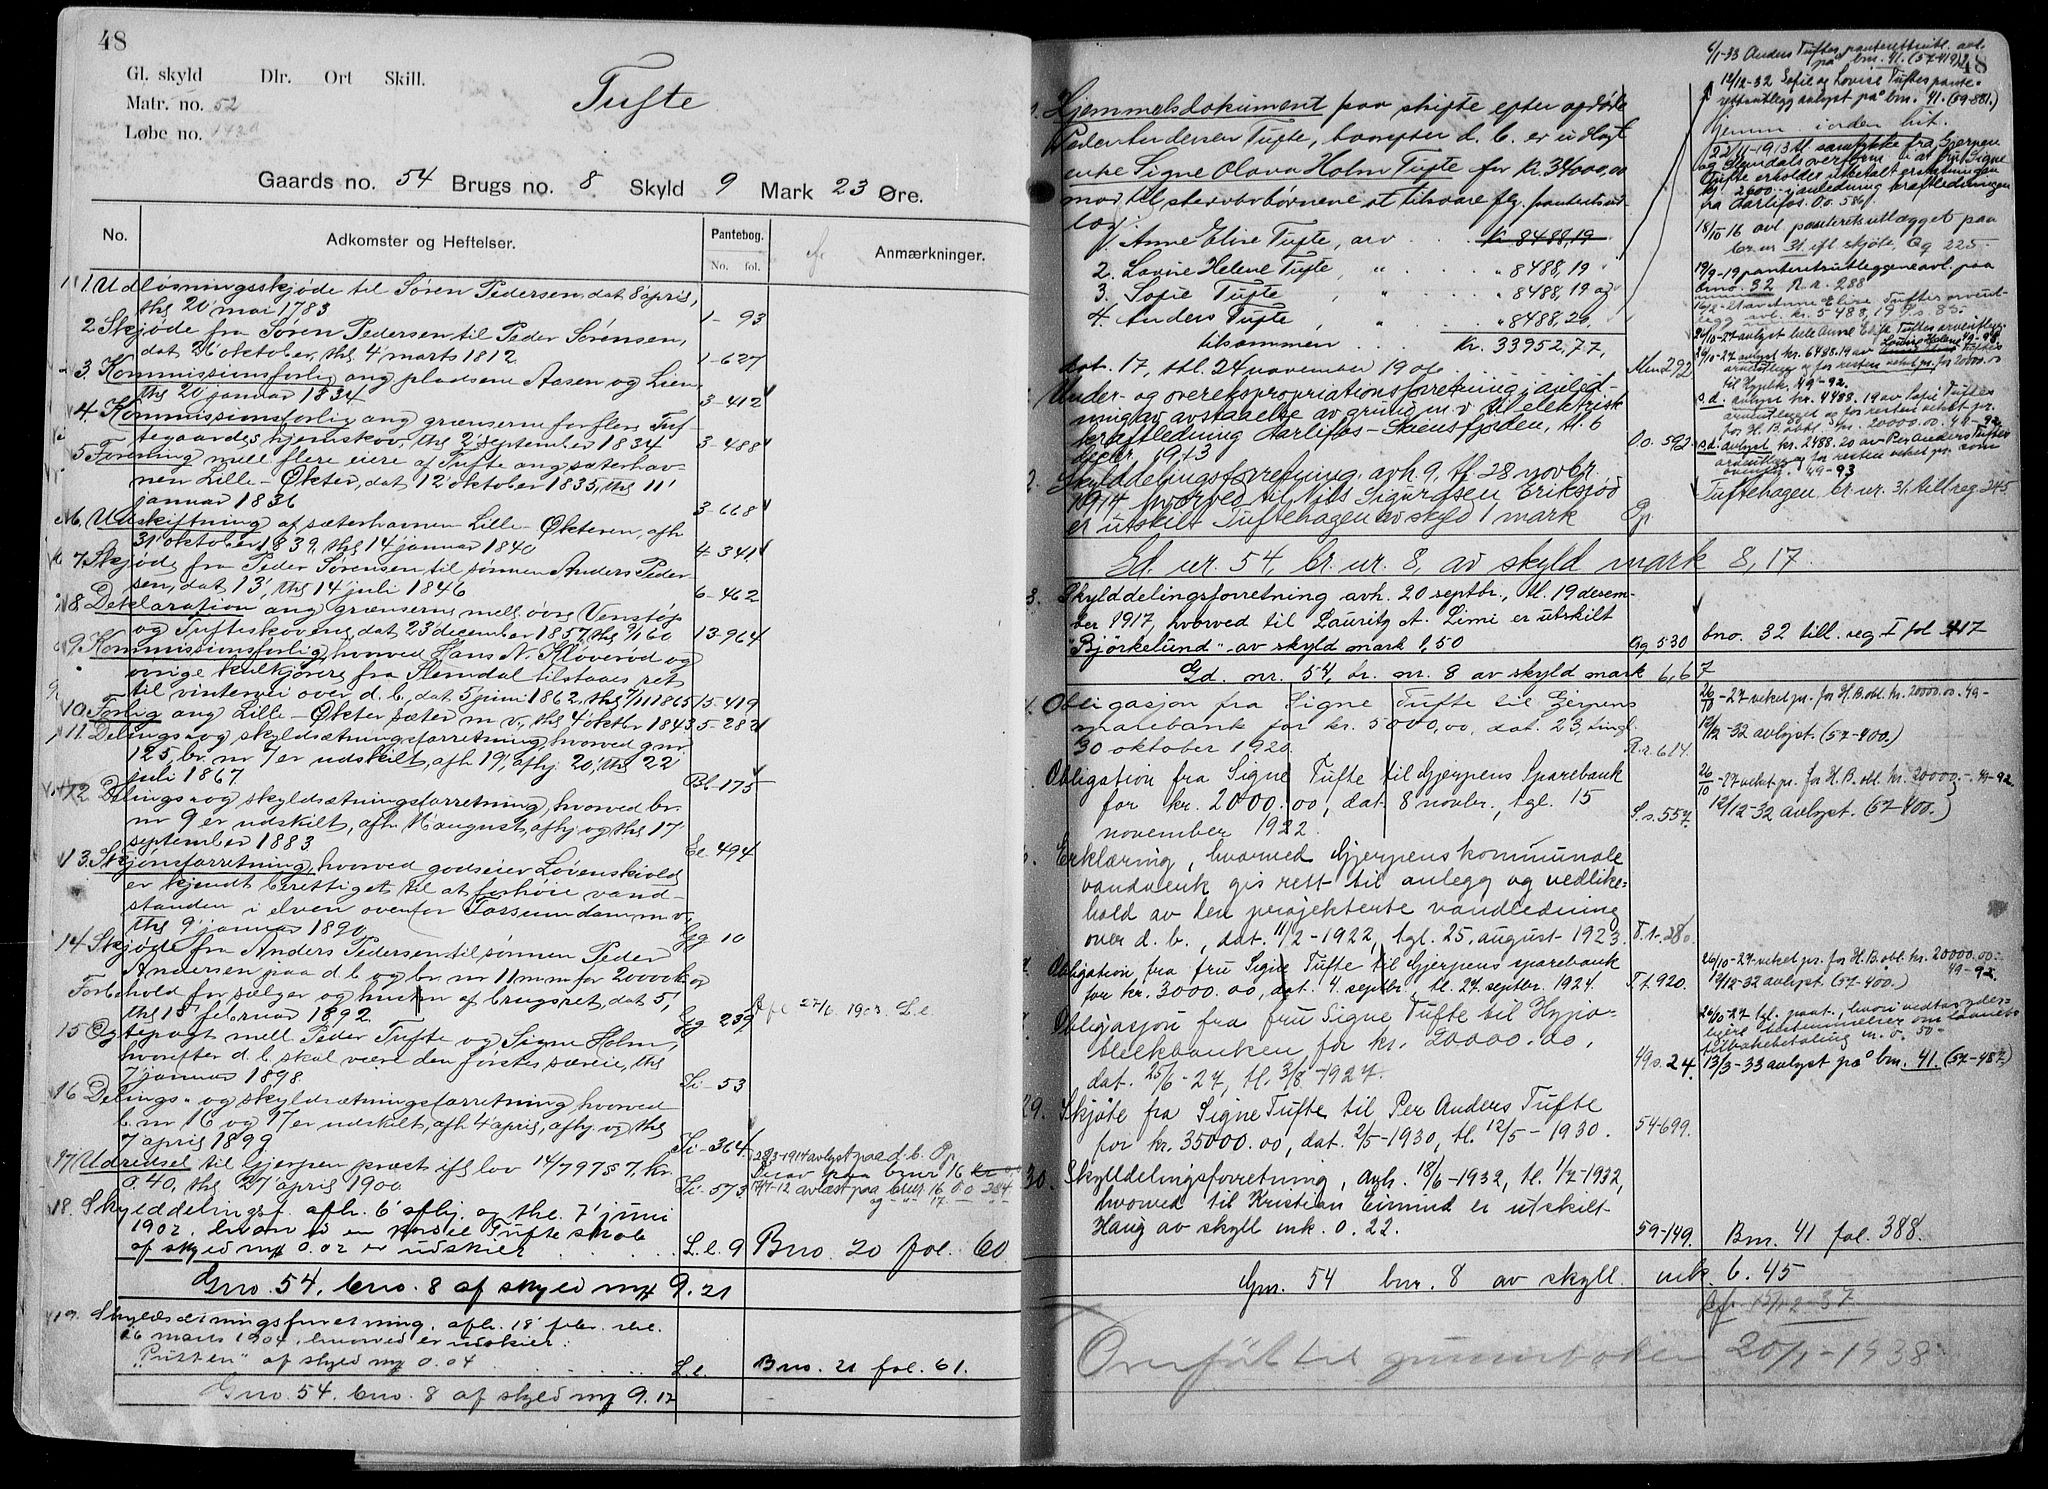 48
Gl. skyld Dlr. Ort Skill.
Matr. no. 52
Løbe no.
Tufte
Gaards no. 54 Brugs no. 8 Skyld 9 Mark 23 Øre.
No. Adkomster og Heftelser. Pantebog. No. fol. Anmærkninger.
1 Udløsningsskjøde til Søren Pedersen, dat 8 april,
ths 20 mai 1783 1- 93
2 Skjøde fra Søren Pedersen til Peder Sørensen,
dat 26 oktober, ths 4 marts 1812 1-627
3. Kommissionsforlig ang pladsene Aasen og Lien
ths 20 januar 1834 3-412
4. Kommissionsforlig ang grænserne for flere Tuf-
tegaardes hjemskov, ths 2 september 1834 3-488
5 Forening mell flere eiere af Tufte ang sæterhav-
nen Lille-Økter, dat 12 oktober 1835, ths 11
januar 1836 3-668
6. Udskiftning af sæterhavnen Lille-Økteren, afh
31 oktober 1839, ths 14 januar 1840 4-341
7 Skjøde fra Peder Sørensen til sønnen Anders Peder-
sen, dat 13, ths 14 juli 1846 6-462
8 Deklaration ang grænserne mell øvre Venstøp
og Tufteskovene, dat 23 december 1857, ths 9/1 60 13-964
9. Kommissionsforlig, hvorved Hans N. Kløverød og
øvrige kulkjørere fra Slemdal tilstaaes ret
til vintervei over d. b, dat 5 juni 1862, ths 7/11 1865 15-419
10 Forlig ang Lille-Økter sæter m v, ths 4 oktbr 1843 5-282
11 Delings- og skyldsætningsforretning, hvorved gnr
125, br nr 1 er udskilt, afh 19, afhj 20, ths 22
juli 1867 Bb-175
12 Delings- og skyldsætningsforretning, hvorved br.
nr 9 er udskilt, afh 16 august, afhj og ths 17
september 1883 Ee 494
13. Skjønsforretning, hvorved godseier Løvenskiold
er kjendt berettiget til at forhøie vand-
standen i elven ovenfor Fossum dam m v,
ths 9 januar 1890 Gg 10
14 Skjøde fra Anders Pedersen til sønnen Peder
Andersen paa d. b og br nr 11 m m for 20000 kr og
Forbehold for sælger og hustru af brugsret, dat 5,
ths 15 februar 1892 Gg 239 27/6 1903 L.e.
15 Ægtepagt mell Peder Tufte og Signe Holm,
hvorefter d. b. skal være den førstes særeie, ths
7 januar 1898 Ii-53
16 Delings- og skyldsætningsforretning, hvorved
b. nr 16 og 17 er udskilt, afh 4 april, afhj og ths
7 april 1899 Ii-364
17 Udredsel til Gjerpen præst ifl lov 14/7 97 § 7, kr.
0.40, ths 27 april 1900 Ii-573
28/3-1914 avlyst paa d. b. Op
18. Skylddelingsf. afh. 6 afhj. og thl. 7 juni
1902, hvorved en parcel Tufte skole
af skyld mk 0.02 er udskilt L.l. 9 Bno. 20 fol. 60
Gno. 54. bno. 8 af skyld mk 9.21
19. Skylddelingsforretning, afh. 18 febr. thl.
26 marts 1904, hvorved er udskilt:
"Pusten" af skyld mk 0.04 L.l. Bno. 21 fol. 61.
Gno. 54. bno. 8 af skyld mk 9.17
48
Hjemmelsdokument paa skifte efter afdøde
Peder Andersen Tufte, hvorefter d. b. er udlagt
enke Signe Olava Holm Tufte for kr. 34000,00
mod til stervbobørnene at tilsvare flg. panteretsud-
læg:
1. Anne Elise Tufte, arv kr 8488,19
2. Lovise Helene Tufte, " " 8488,19
3. Sofie Tufte, " " 8488,19 og
4. Anders Tufte, " " 8488,20
tilsammen Kr. 33952,77,
dat. 17, thl. 24 november 1906 Mm 292
Under- og overekspropriationsforretning i anled-
ning av avstaaelse av grund m. v. til elektrisk
kraftledning Aarlifos-Skiensfjorden, tl. 6
decbr. 1913 Oo. 592
2. Skylddelingsforretning, avh. 9, tl. 28 novbr.
1914, hvorved til Nils Sigurdsen Eriksjød
er utskilt Tuftehagen av skyld 1 mark Op
Tuftehagen br. nr. 31 till reg 245
Gd. nr. 54, br. nr. 8, av skyld mark 8,17
3. Skylddelingsforretning avh. 20 septbr., tl. 19 decem-
ber 1917, hvorved til Lauritz A. Limi er utskilt
"Bjørkelund" av skyld mark 1,50 Qq 530 bno. 32 till. reg I fol 417
Gd. nr. 54, br. nr. 8 av skyld mark 6,67
Obligasjon fra Signe Tufte til Gjerpens
sparebank for kr. 5000,00, dat. 23, tingl.
30 oktober 1920 R.r. 614.
26/10-27 veket pr. for H.B. obl. kr. 20000.00. 49-
12/12-32 avlyst. (57-400.)
Obligation fra Signe Tufte til Gjerpens Sparebank
for kr. 2000.00, dat. 8 novbr., tgl. 15
november 1922. S.s. 557.
26/10-27 veket pr. for H.B. obl. kr. 20000.- 49-92
12/12-32 avlyst. (57-400.)
Erklæring, hvorved Gjerpens kommunale
vandverk gis rett til anlegg og vedlike-
hold av den projekterte vandledning
over d. b., dat. 11/2-1922, tgl. 25. august 1923. T.t. 280.
Obligation fra fru Signe Tufte til Gjerpens sparebank
for kr. 3000.00, dat. 4. septbr., tl. 27. septbr. 1924. T.t. 920.
26/10-27 veket pr. for H.B. obl. kr. 20000.00
49-92
12/12-32 avlyst (57-400.)
Obligasjon fra fru Signe Tufte til Hypo-
tekbanken for kr. 20000.00,
dat. 25/6-27, tl. 3/8-1927. 49 s. 24.
13/3-33 avlyst på bnr. 41. (57-487)
29. Skjøte fra Signe Tufte til Per Anders Tufte
for kr. 35000.00, dat. 2/5-1930, tl. 12/5-1930. 54-699.
30. Skylldelingsforretning, avh. 18/6-1932, tl. 1/7-1932,
hvorved til Kristian Eimind er utskilt
Haug av skyll mk. 0.22. 59-149. Bnr. 41 fol. 388.
Gnr. 54 bnr. 8 av skyll mk. 6.45
15/12-37
Overført til grunnboken 20/1-1938
6/1-33 Anders Tuftes panterettsutl. avl.
på bnr. 41. (57-419)
12/12-32 Sofie og Lovise Tuftes pante-
rettsutlegg avlyst på bnr. 41. (59-881.)
22/11-1913 tl samtykke fra Gjerpen
og Slemdals overform. i at fru Signe
Tufte erholder utbetalt erstatningen
kr. 2600.- i anledning kraftledningen
fra Aarlifos. Oo. 586.
18/10 16 avl panteretsutlægget paa
br. nr 31 ifl skjøte, Qq 225
19/9-19 panteretsutlæggene avl. paa
brno. 32 R.r. 288